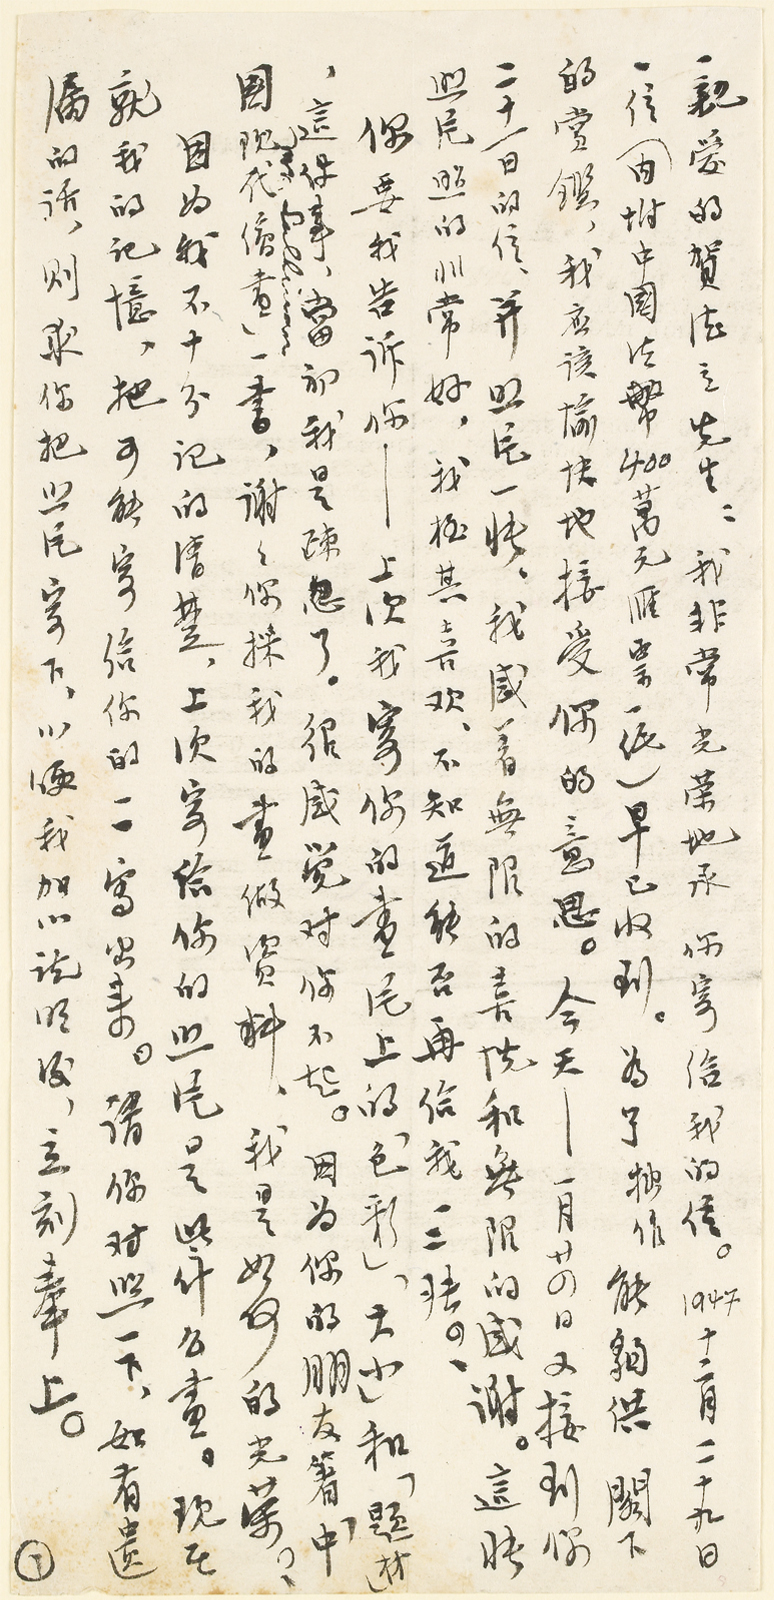 親愛的賀德立先生：我非常光榮地承 你寄給我的信。1947十二月二十九日
一信（內附中國法幣400萬元匯票一紙）早已收到。為了拙作 能夠供 閣下
的賞鑑，我应该愉快地接受你的意思。今天——一月廿四日又接到你
二十一日的信，并照片一帐，我感着無限的喜悦和無限的感谢。這帐
照片照的非常好，我極其喜欢，不知道能否再给我一二张。
你要我告诉你——上次我寄你的畫片上的「色彩」、「大小」和「題材」
，這件事，當初我是疎忽了。很感覺对你不起。因为你的朋友著「中
國現代繪畫」一書，谢谢你採我的畫做资料，我是如何的光荣。
因为我不十分记的清楚，上次寄给你的照片是些什么畫。现在
就我的记憶，把可能寄给你的一一寫出来。請你对照一下，如有遺
漏的话，则求你把照片寄下，以便我加以说明後，立刻奉上。
①